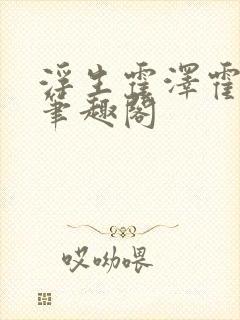 浮生霍澤霍
筆趣閣
哎呦喂